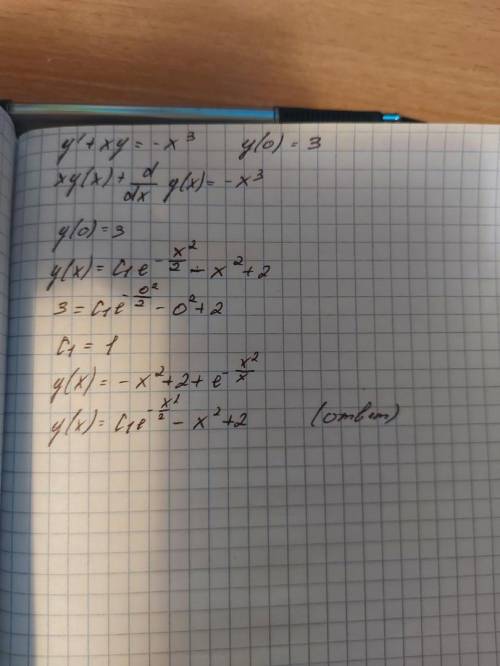 y' + xy = -x³ y(0) = 3
xy(x) + d/dx y(x) = -x³
y(0) = 3
y(x) = C₁e^(-x²/2) - x² + 2
3 = C₁e^(-0²/2) - 0² + 2
C₁ = 1
y(x) = -x² + 2 + e^(-x²/x)
y(x) = C₁e^(-x²/2) - x² + 2 (ответ)